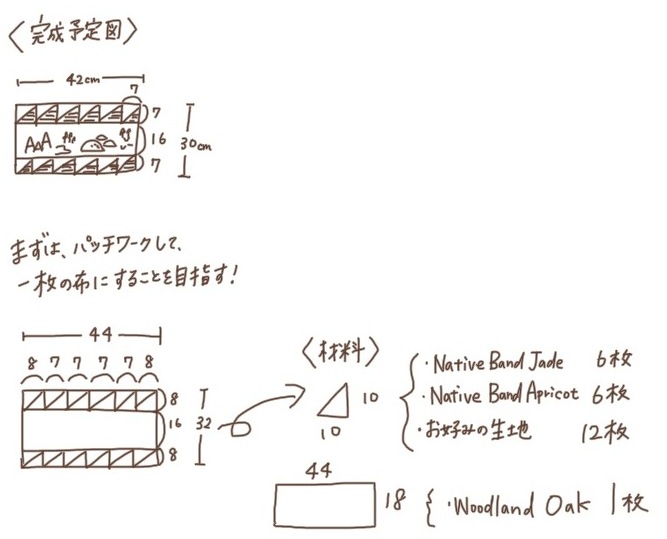 〈完成予定図〉
42cm
7
7
16
7
30cm
まずは、パッチワークして、
一枚の布にすることを目指す！
44
8 7 7 7 7 8
8
16
8
32
〈材料〉
10
10
・Native Band Jade 6枚
・Native Band Apricot 6枚
・お好みの生地 12枚
44
18
・Woodland Oak 1枚